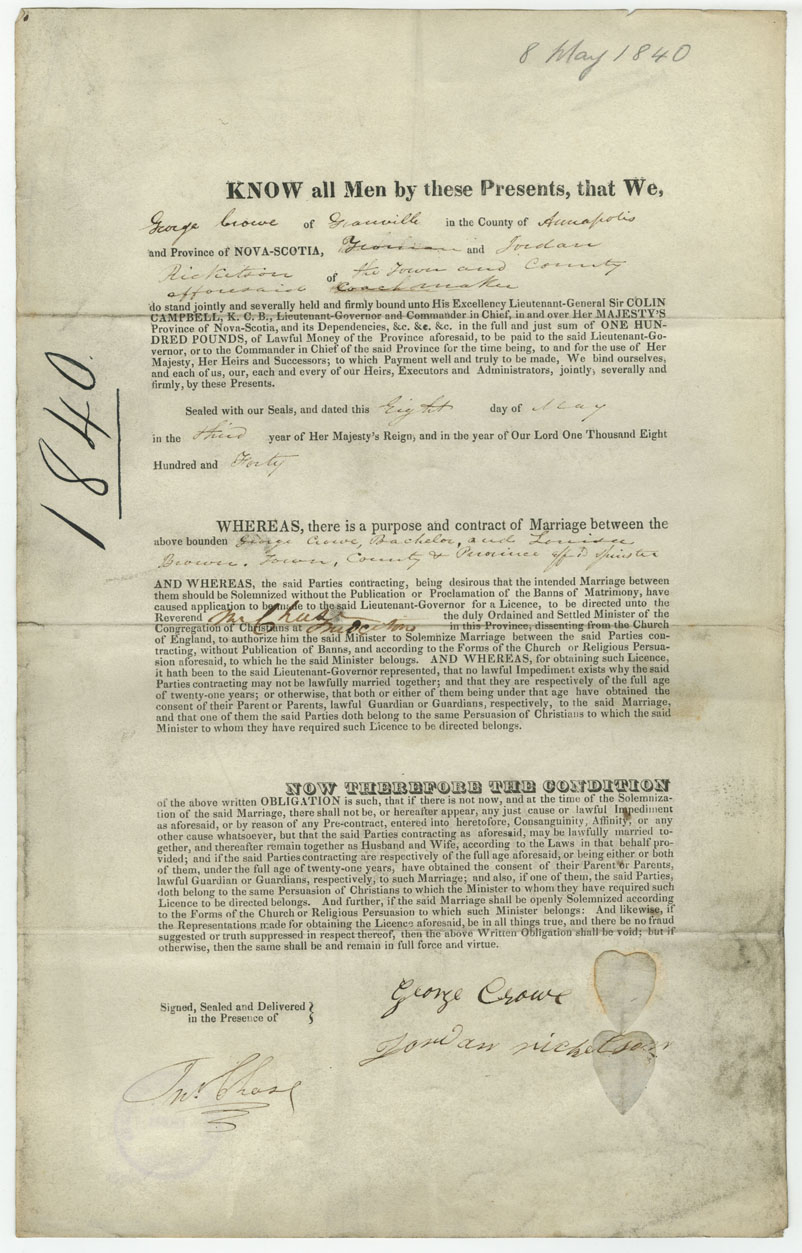 8 May 1840
KNOW all Men by these Presents, that We,
George Crowe of Granville in the County of Annapolis
and Province of NOVA-SCOTIA, Yeoman and Jordan
Ricketson of the Town and County
afforesaid Coachmaker
do stand jointly and severally held and firmly bound unto His Excellency Lieutenant-General Sir COLIN
CAMPBELL, K. C. B., Lieutenant-Governor and Commander in Chief, in and over Her MAJESTY'S
Province of Nova-Scotia, and its Dependencies, &c. &c. &c. in the full and just sum of ONE HUN-
DRED POUNDS, of Lawful Money of the Province aforesaid, to be paid to the said Lieutenant-Go-
vernor, or to the Commander in Chief of the said Province for the time being, to and for the use of Her
Majesty, Her Heirs and Successors; to which Payment well and truly to be made, We bind ourselves,
and each of us, our, each and every of our Heirs, Executors and Administrators, jointly, severally and
firmly, by these Presents.
Sealed with our Seals, and dated this Eight day of May
in the third year of Her Majesty's Reign, and in the year of Our Lord One Thousand Eight
Hundred and Forty
1840.
WHEREAS, there is a purpose and contract of Marriage between the
above bounden George Crowe, Bachelor, and Louisa
Brown. Town, County & Province affd Spinster
AND WHEREAS, the said Parties contracting, being desirous that the intended Marriage between
them should be Solemnized without the Publication or Proclamation of the Banns of Matrimony, have
caused application to be made to the said Lieutenant-Governor for a Licence, to be directed unto the
Reverend Mr Chase the duly Ordained and Settled Minister of the
Congregation of Christians at in this Province, dissenting from the Church
of England, to authorize him the said Minister to Solemnize Marriage between the said Parties con-
tracting, without Publication of Banns, and according to the Forms of the Church or Religious Persua-
sion aforesaid, to which he the said Minister belongs. AND WHEREAS, for obtaining such Licence,
it hath been to the said Lieutenant-Governor represented, that no lawful Impediment exists why the said
Parties contracting may not be lawfully married together; and that they are respectively of the full age
of twenty-one years; or otherwise, that both or either of them being under that age have obtained the
consent of their Parent or Parents, lawful Guardian or Guardians, respectively, to the said Marriage,
and that one of them the said Parties doth belong to the same Persuasion of Christians to which the said
Minister to whom they have required such Licence to be directed belongs.
NOW THEREFORE THE CONDITION
of the above written OBLIGATION is such, that if there is not now, and at the time of the Solemniza-
tion of the said Marriage, there shall not be, or hereafter appear, any just cause or lawful Impediment
as aforesaid, or by reason of any Pre-contract, entered into heretofore, Consanguinity, Affinity, or any
other cause whatsoever, but that the said Parties contracting as aforesaid, may be lawfully married to-
gether, and thereafter remain together as Husband and Wife, according to the Laws in that behalf pro-
vided; and if the said Parties contracting are respectively of the full age aforesaid, or being either or both
of them, under the full age of twenty-one years, have obtained the consent of their Parent or Parents,
lawful Guardian or Guardians, respectively, to such Marriage; and also, if one of them, the said Parties,
doth belong to the same Persuasion of Christians to which the Minister to whom they have required such
Licence to be directed belongs. And further, if the said Marriage shall be openly Solemnized according
to the Forms of the Church or Religious Persuasion to which such Minister belongs: And likewise, if
the Representations made for obtaining the Licence aforesaid, be in all things true, and there be no fraud
suggested or truth suppressed in respect thereof, then the above Written Obligation shall be void; but if
otherwise, then the same shall be and remain in full force and virtue.
Signed, Sealed and Delivered
in the Presence of
George Crowe
Jordan ricketson
Jno. Chase